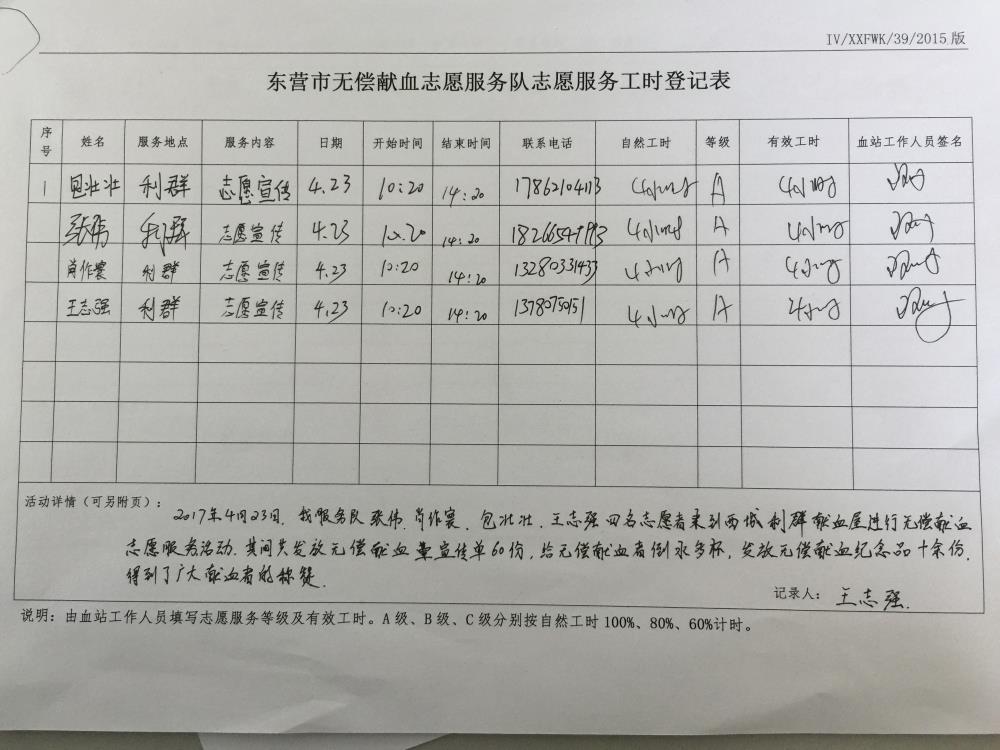 IV/XXFWK/39/2015版
东营市无偿献血志愿服务队志愿服务工时登记表
序号 姓名 服务地点 服务内容 日期 开始时间 结束时间 联系电话 自然工时 等级 有效工时 血站工作人员签名
1 包壮壮 利群 志愿宣传 4.23 10:20 14:20 17862104113 4小时 A 4小时
张伟 利群 志愿宣传 4.23 10:20 14:20 4小时 A 4小时
肖作寰 利群 志愿宣传 4.23 10:20 14:20 13280331433 4小时 A 4小时
王志强 利群 志愿宣传 4.23 10:20 14:20 4小时 A 4小时
活动详情（可另附页）：
2017年4月23日，我服务队张伟、肖作寰、包壮壮、王志强四名志愿者来到西城利群献血屋进行无偿献血
志愿服务活动.其间共发放无偿献血宣传单60份，给无偿献血者倒水多杯，发放无偿献血纪念品十余份，
得到了广大献血者的称赞.
记录人：王志强.
说明：由血站工作人员填写志愿服务等级及有效工时。A级、B级、C级分别按自然工时100%、80%、60%计时。